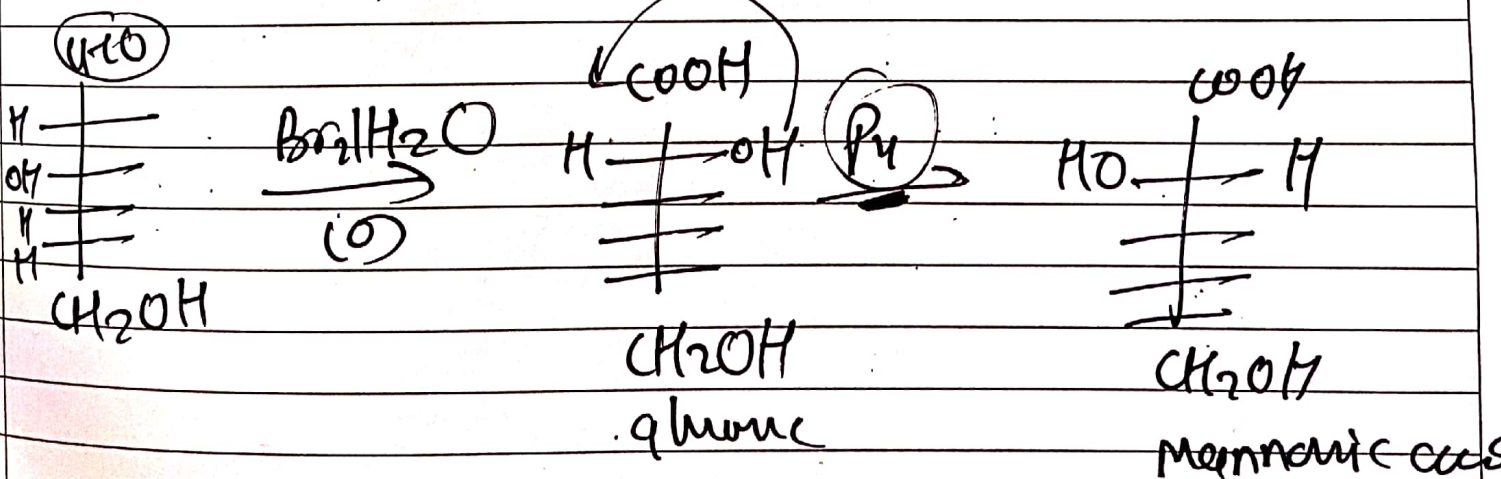 CHO
H
OH
H
H
CH2OH
Br2/H2O
(O)
COOH
H OH
CH2OH
gluconic
Py
COOH
HO H
CH2OH
Mannonic